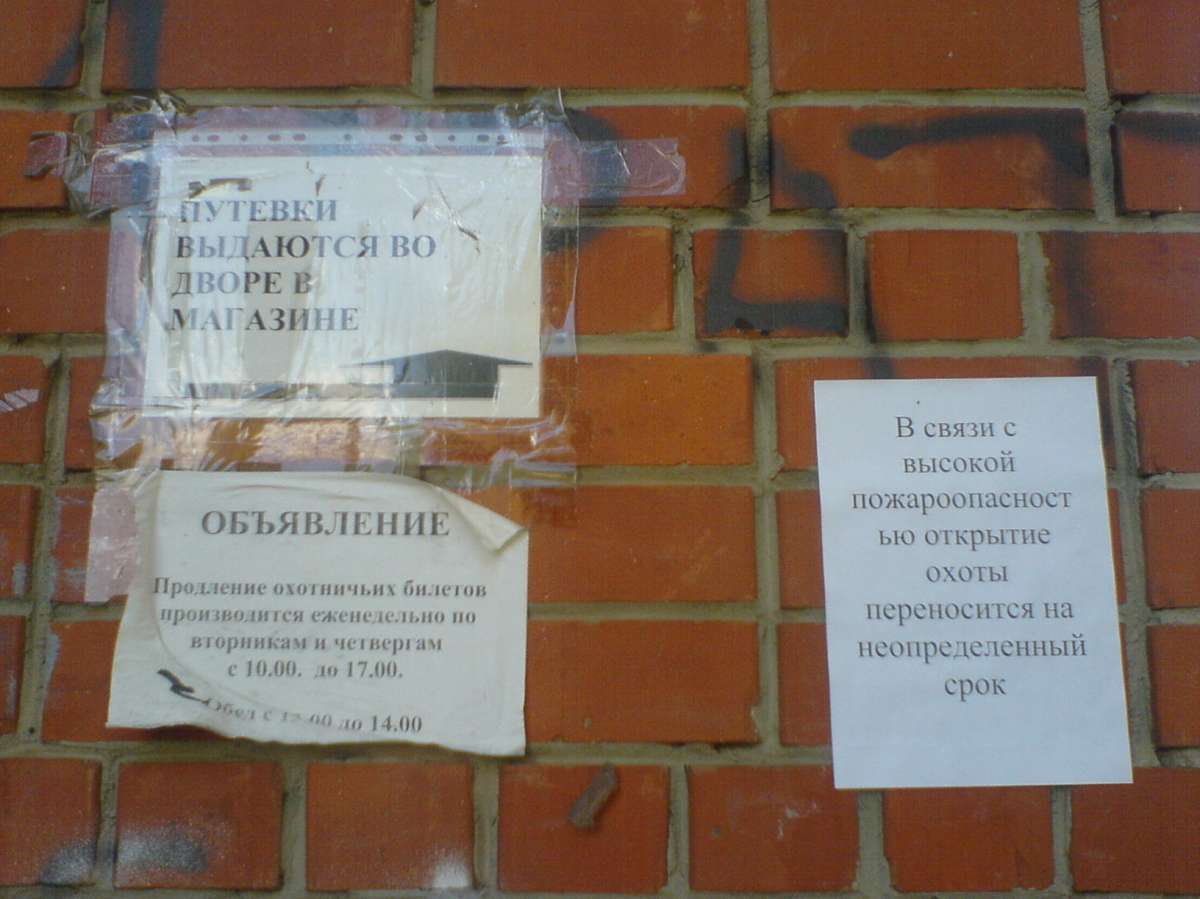 ПУТЕВКИ
ВЫДАЮТСЯ ВО
ДВОРЕ В
МАГАЗИНЕ
ОБЪЯВЛЕНИЕ
Продление охотничьих билетов
производится еженедельно по
вторникам и четвергам
с 10.00. до 17.00.
Обед с до 14.00
В связи с
высокой
пожароопасност
ью открытие
охоты
переносится на
неопределенный
срок